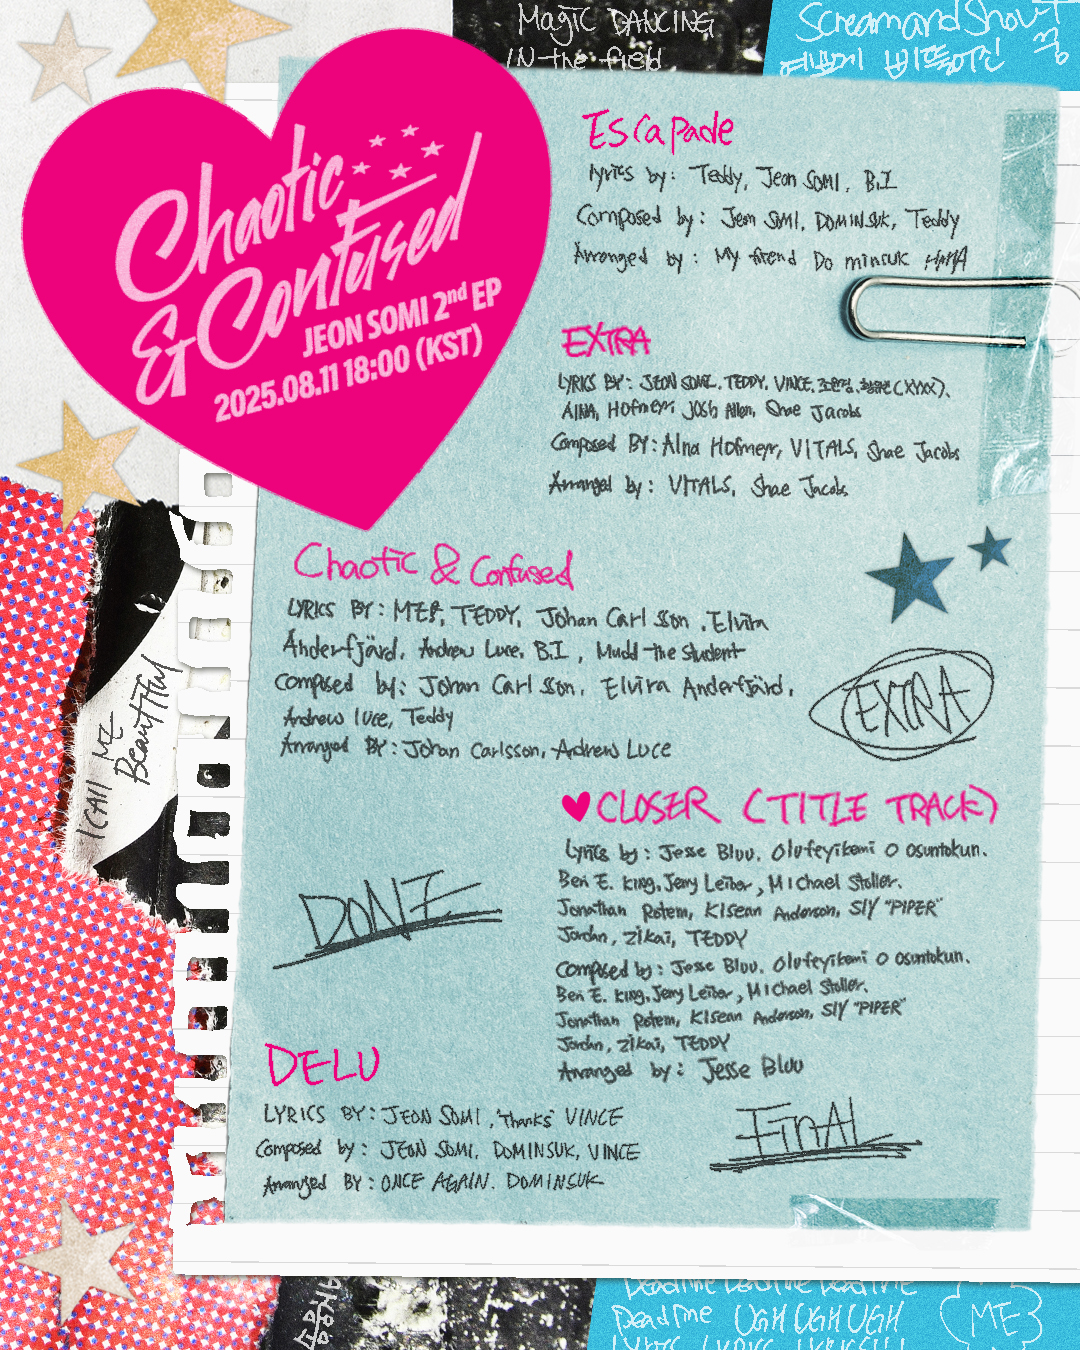 Magic DANCING
IN the field
Screamandshout
Chaotic
& Confused
JEON SOMI 2nd EP
2025.08.11 18:00 (KST)
Escapade
lyrics by: Teddy, Jeon SOMI, B.I
Composed by: Jeon SOMI, DOMINSUK, Teddy
Arranged by: My friend Do minsuk HAHA
EXTRA
LYRICS BY: JEON SOMI, TEDDY, VINCE, (XYXX),
AINA, Hofmeyr, Josh Allen, Shae Jacobs
Composed BY: AINA Hofmeyr, VITALS, Shae Jacobs
Arranged by: VITALS, Shae Jacobs
Chaotic & Confused
LYRICS BY: ME!, TEDDY, Johan Carlsson, Elvira
Anderfjärd, Andrew Luce, B.I, Mudd the student
Composed by: Johan Carlsson, Elvira Anderfjärd,
Andrew luce, Teddy
Arranged BY: Johan Carlsson, Andrew Luce
I CAll ME
Beautiful
EXTRA
CLOSER (TITLE TRACK)
Lyrics by: Jesse Bluu, Olufeyikemi O Osuntokun,
Ben E. King, Jerry Leiber, Michael Stoller,
Jonathan Rotem, Kisean Anderson, SlY "PIPER"
Jordan, Zikai, TEDDY
Composed by: Jesse Bluu, Olufeyikemi O Osuntokun,
Ben E. King, Jerry Leiber, Michael Stoller,
Jonathan Rotem, Kisean Anderson, SlY "PIPER"
Jordan, Zikai, TEDDY
Arranged by: Jesse Bluu
DONE
DELU
LYRICS BY: JEON SOMI, "Thanks" VINCE
Composed by: JEON SOMI, DOMINSUK, VINCE
Arranged BY: ONCE AGAIN, DOMINSUK
FINAL
Deadline Deadline Deadline
Deadline UGH UGH UGH
ME